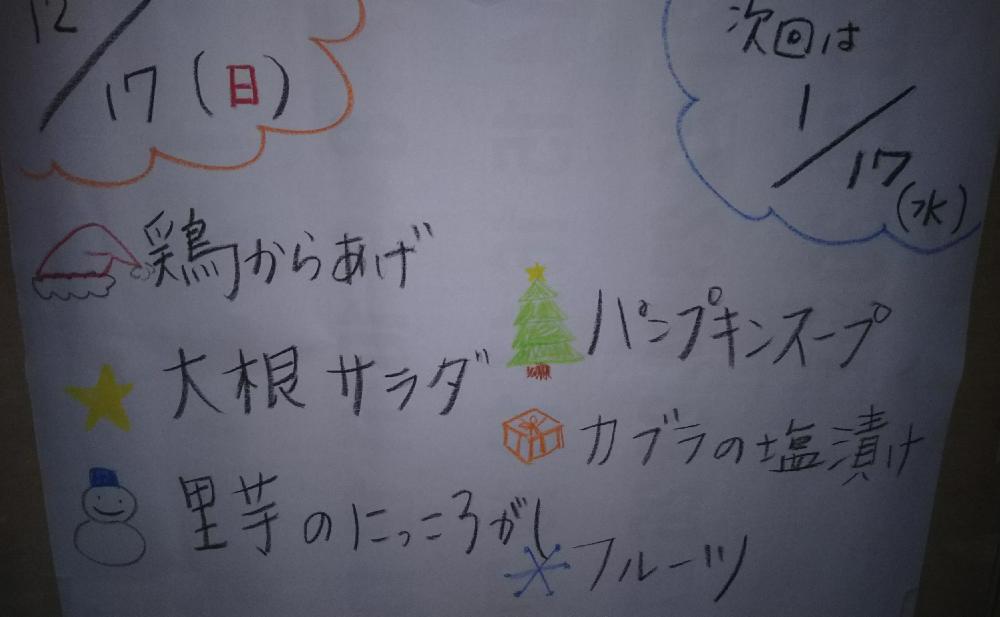 12/17(日)
次回は
1/17(水)
鶏からあげ
大根サラダ
里芋のにっころがし
パンプキンスープ
カブラの塩漬け
フルーツ